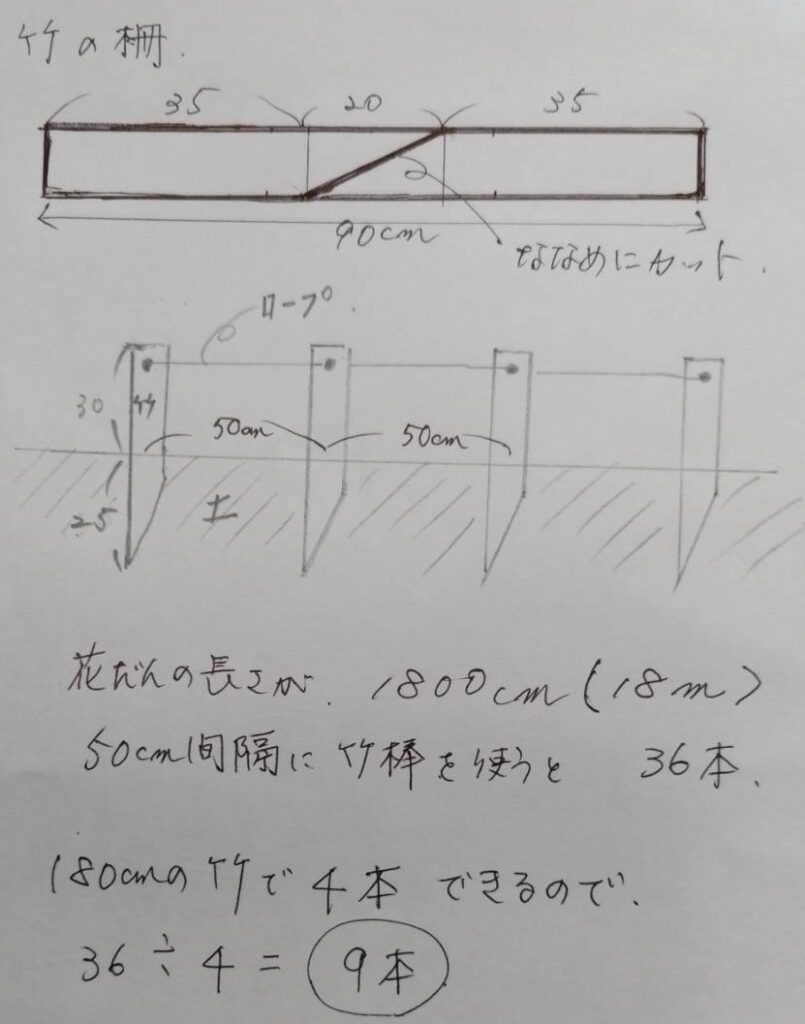 竹の柵.
35 20 35
90cm
ななめにカット.
ロープ.
30 竹 50cm 50cm
25 土
花だんの長さが. 1800cm(18m)
50cm間隔に竹棒を使うと 36本.
180cmの竹で4本できるので.
36÷4=9本